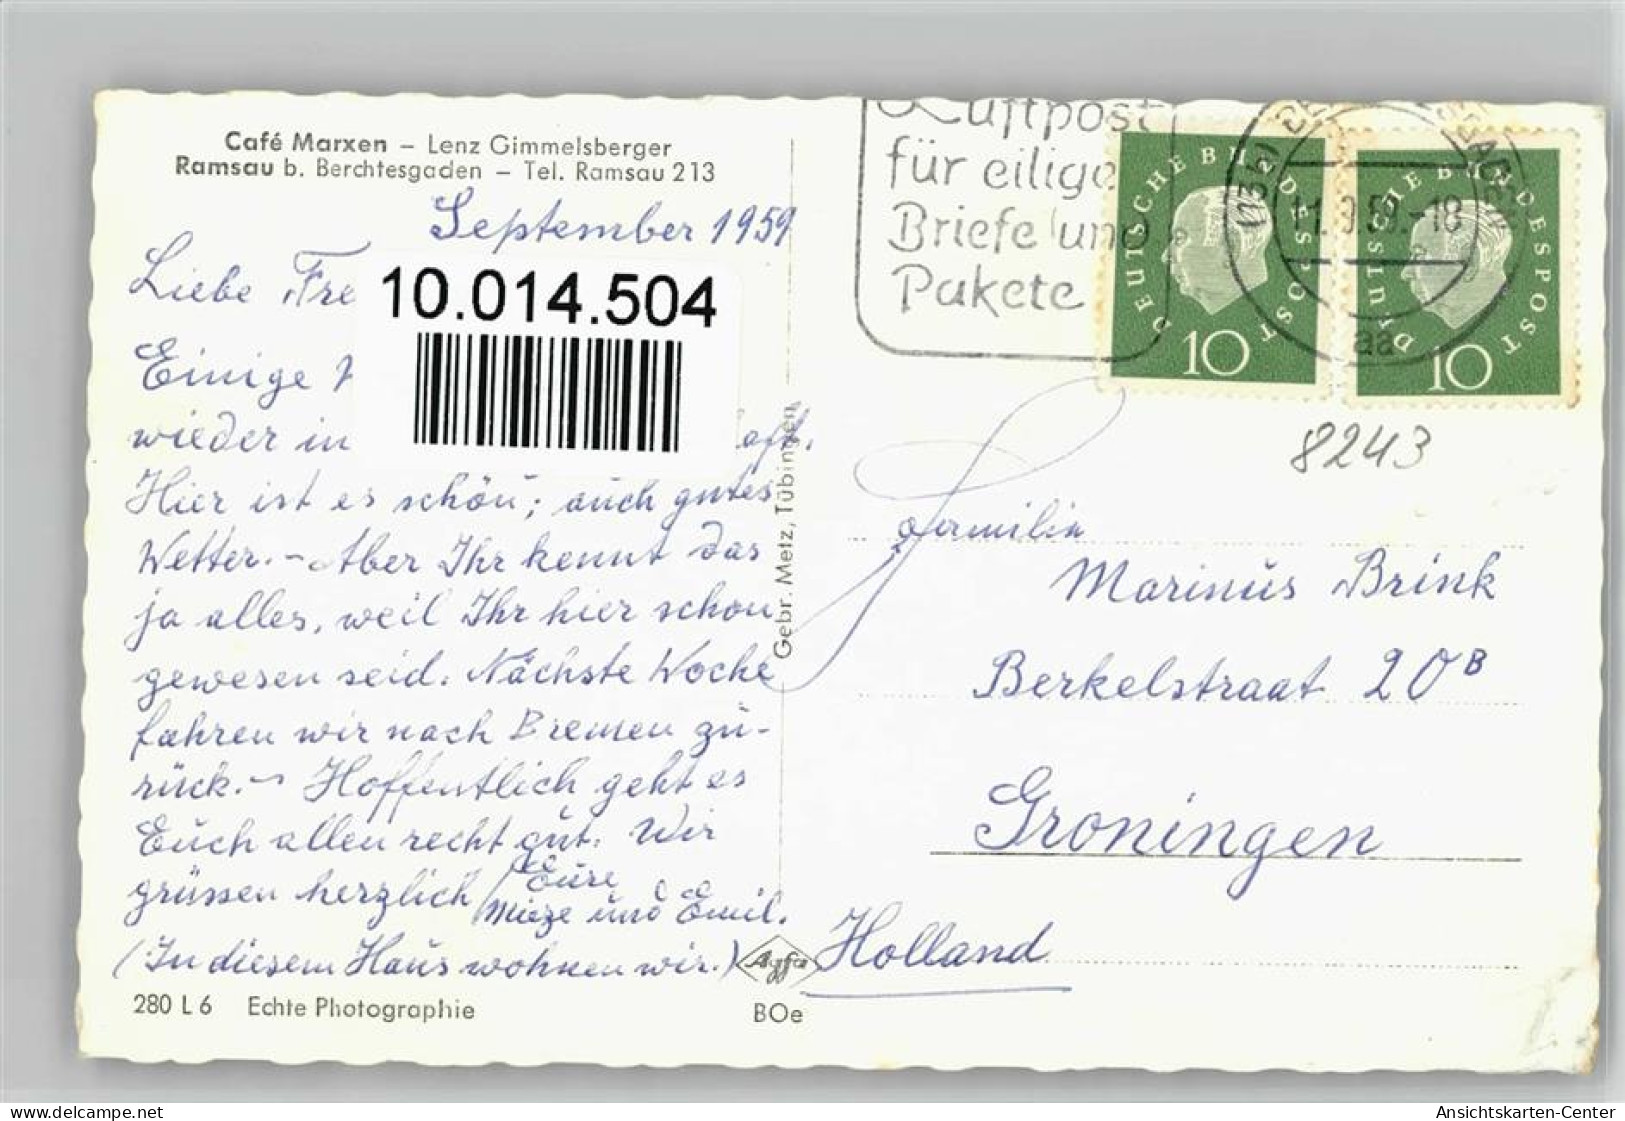 Café Marxen – Lenz Gimmelsberger
Ramsau b. Berchtesgaden – Tel. Ramsau 213
September 1959
Liebe Fre
10.014.504
Einige
wieder in
Hier ist es schön; auch gutes
Wetter. – Aber Ihr kennt das
ja alles, weil Ihr hier schon
gewesen seid. Nächste Woche
fahren wir nach Bremen zu-
rück. – Hoffentlich geht es
Euch allen recht gut. Wir
grüssen herzlich Eure
Mieze und Emil.
(In diesem Haus wohnen wir.)
280 L 6 Echte Photographie
Agfa
BOe
Gebr. Metz, Tübingen
Luftpost
für eilige
Briefe und
Pakete
DEUTSCHE BUNDESPOST
10
DEUTSCHE BUNDESPOST
10
(13b)
11.9.59.-18
aa
8243
Familie
Marinus Brink
Berkelstraat 20B
Groningen
Holland
delcampe.net
Ansichtskarten-Center